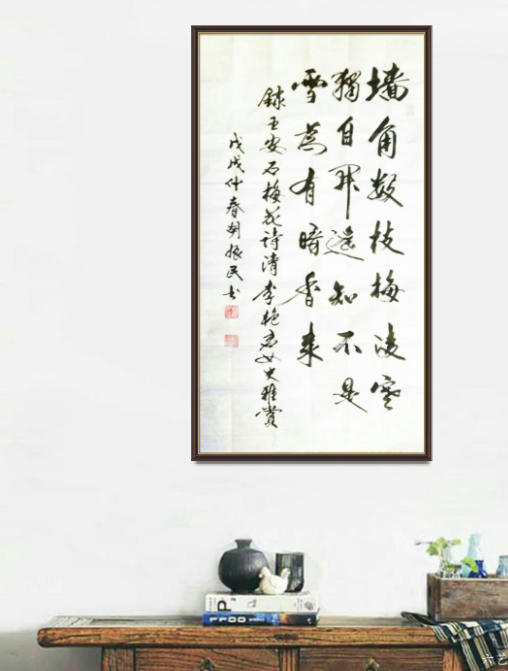 墙角数枝梅凌寒
獨自开遥知不是
雪为有暗香来
録王安石梅花诗清李艳君女史雅賞
戊戌仲春胡振民书